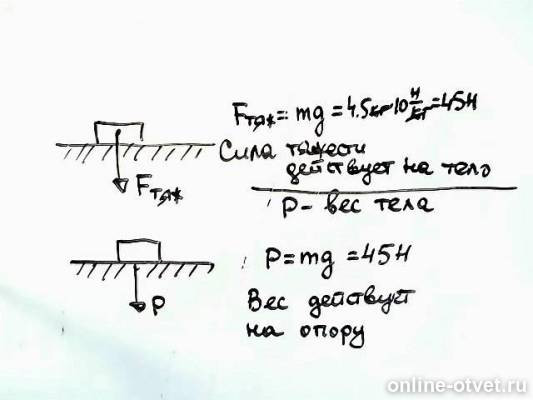 Fтяж = mg = 4.5кг·10 Н/кг = 45Н
Сила тяжести
действует на тело
Fтяж
P - вес тела
P = mg = 45Н
Вес действует
на опору
P
online-otvet.ru